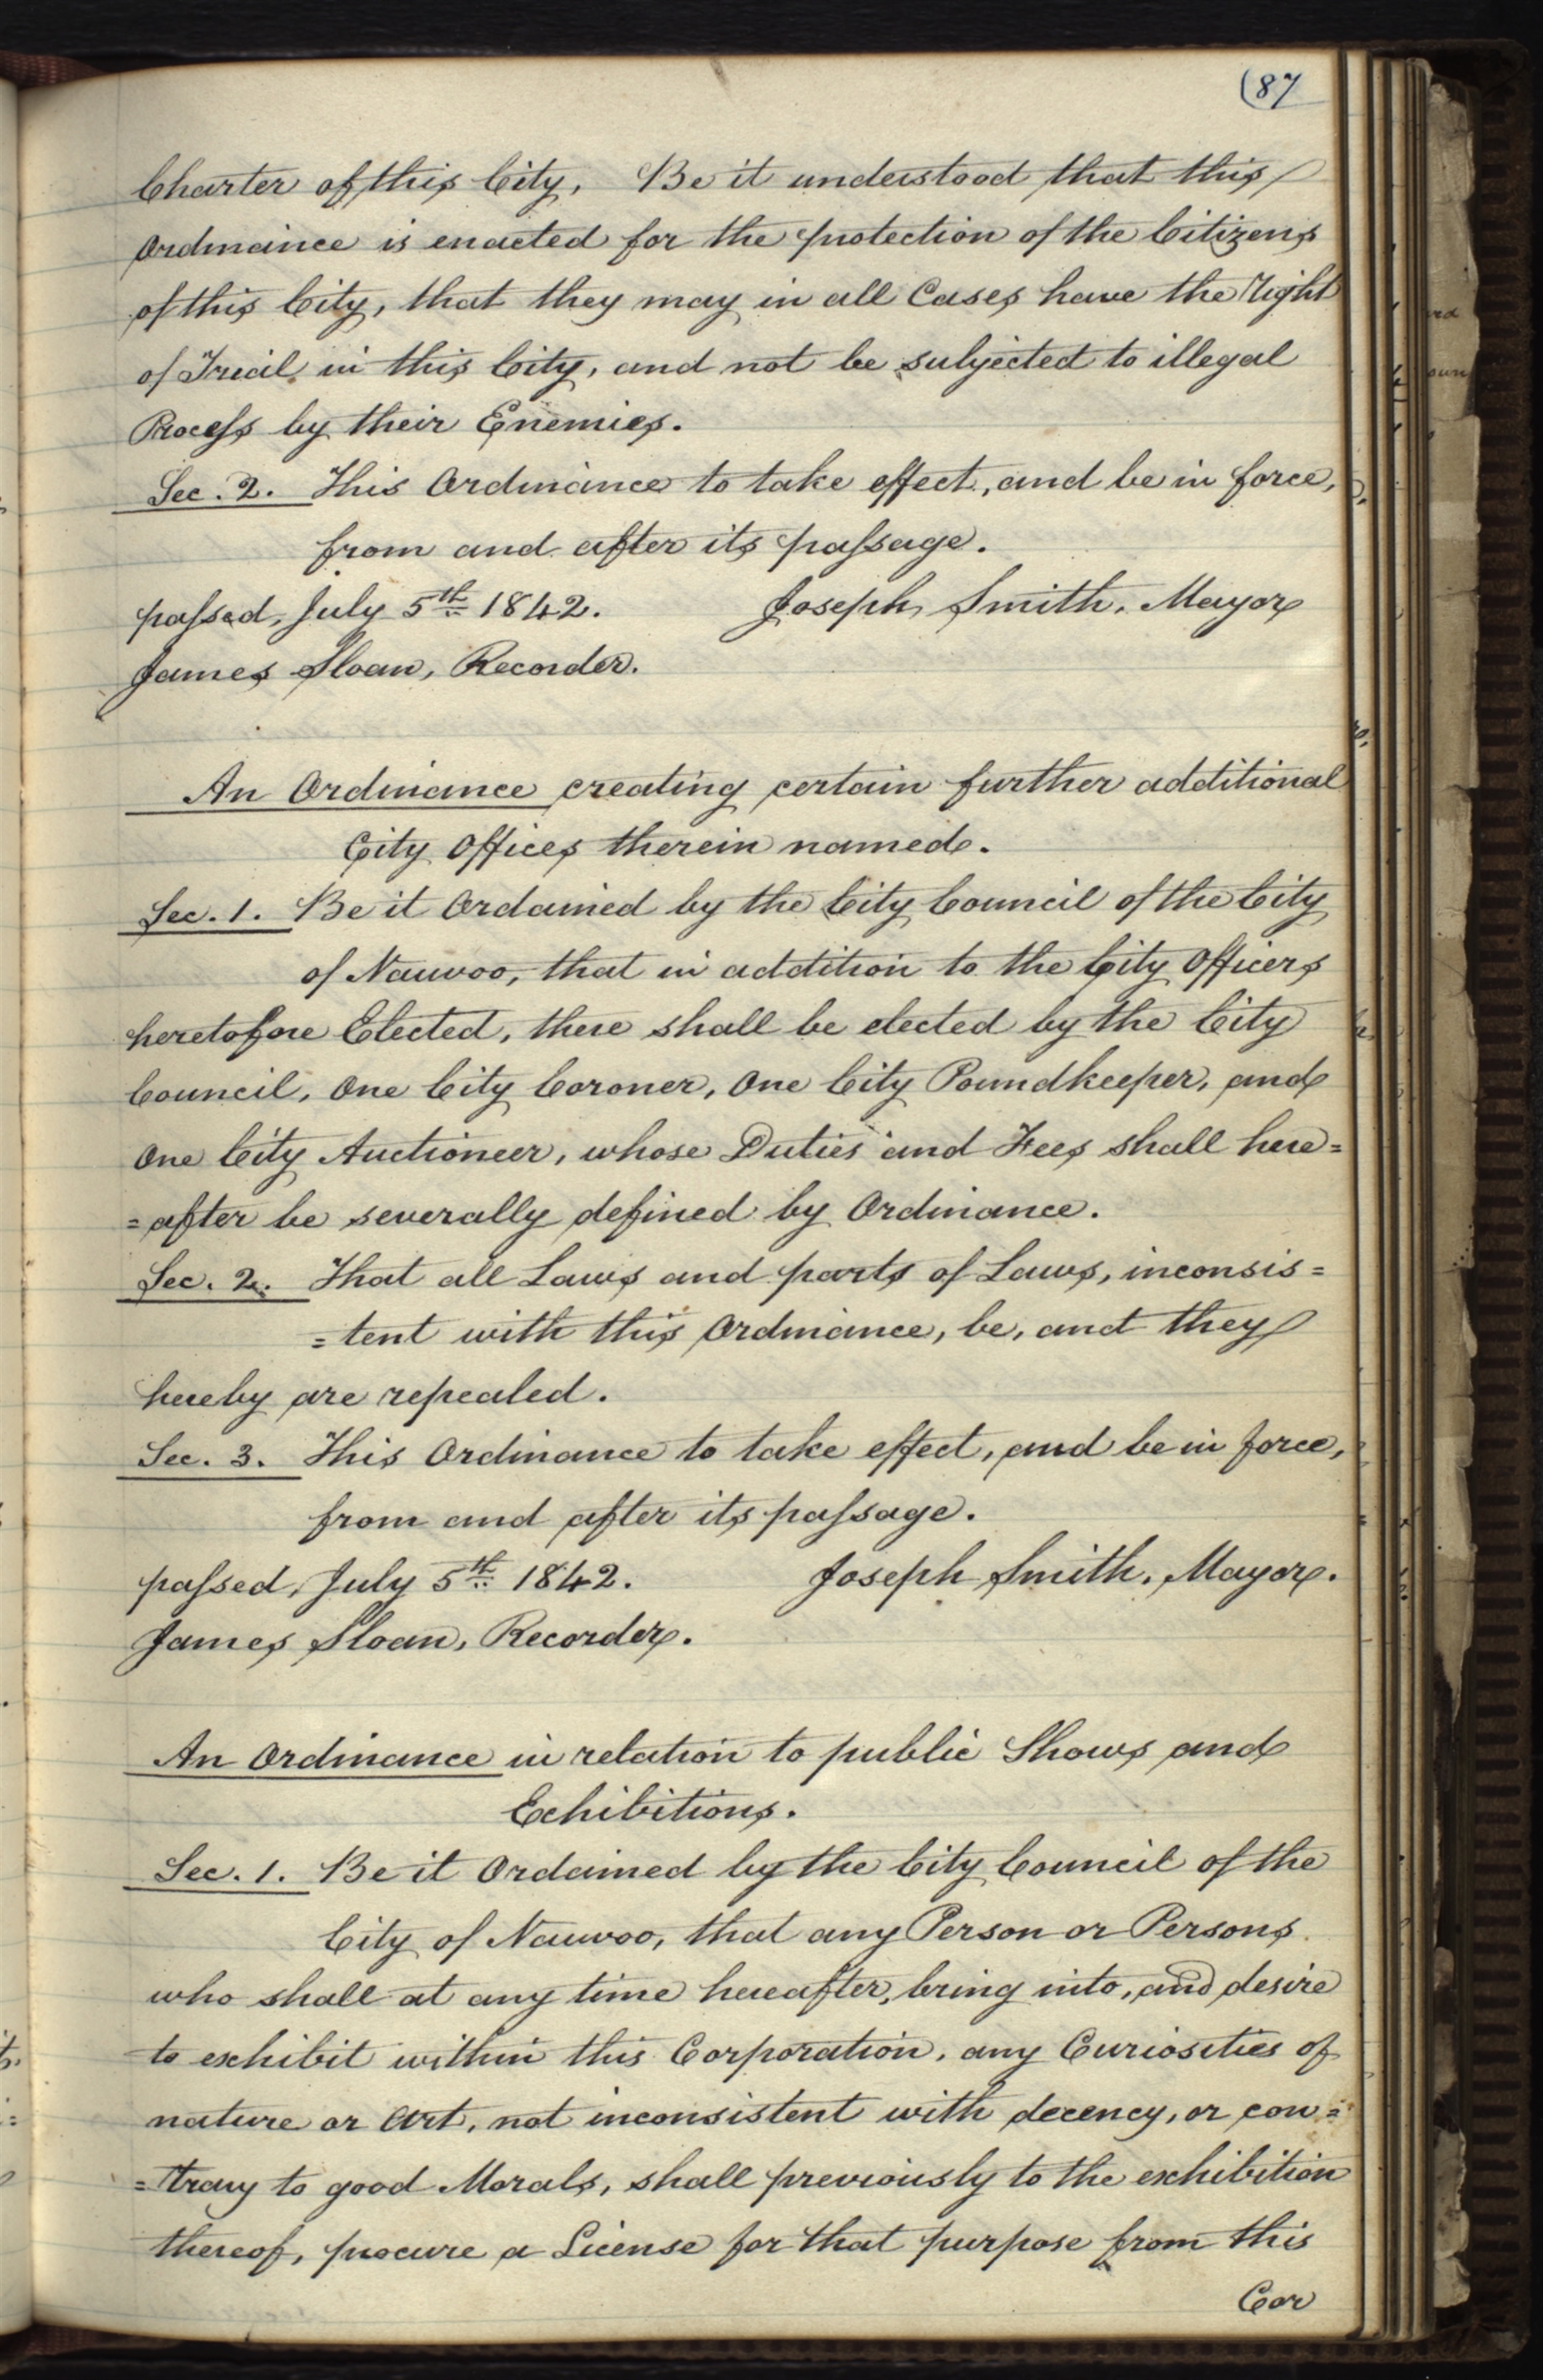 (87
Charter of this City. Be it understood that this
Ordinance is enacted for the protection of the Citizens
of this City, that they may in all Cases have the Right
of Trial in this City, and not be subjected to illegal
Process by their Enemies.
Sec. 2. This Ordinance to take effect, and be in force,
from and after its passage.
passed, July 5th 1842. Joseph Smith, Mayor
James Sloan, Recorder.
An Ordinance creating certain further additional
City Offices therein named.
Sec. 1. Be it Ordained by the City Council of the City
of Nauvoo, that in addition to the City Officers
heretofore Elected, there shall be elected by the City
Council, One City Coroner, One City Poundkeeper, and
One City Auctioneer, whose Duties and Fees shall here=
=after be severally defined by Ordinance.
Sec. 2. That all Laws and parts of Laws, inconsis=
=tent with this Ordinance, be, and they
hereby are repealed.
Sec. 3. This Ordinance to take effect, and be in force,
from and after its passage.
passed, July 5th 1842. Joseph Smith, Mayor.
James Sloan, Recorder.
An Ordinance in relation to public Shows and
Exhibitions.
Sec. 1. Be it Ordained by the City Council of the
City of Nauvoo, that any Person or Persons
who shall at any time hereafter, bring into, and desire
to exhibit within this Corporation, any Curiosities of
nature or Art, not inconsistent with decency, or con=
=trary to good Morals, shall previously to the exhibition
thereof, procure a License for that purpose from this
Cor